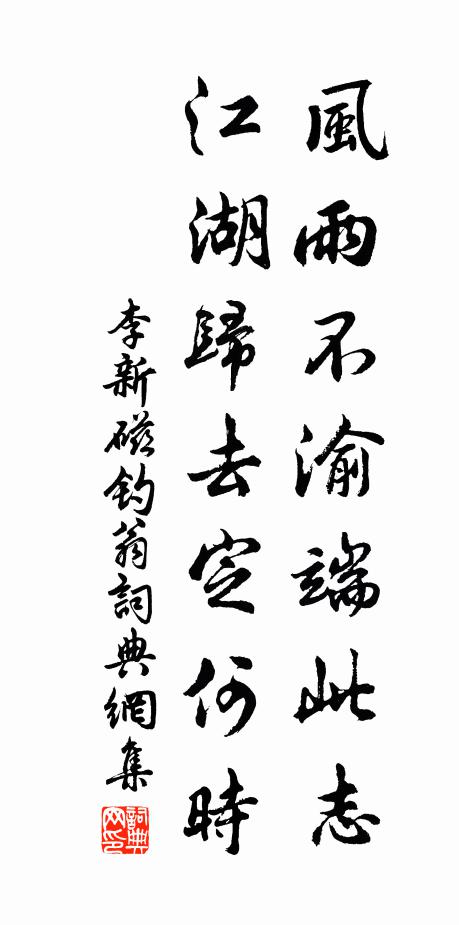 風雨不渝端此志
江湖歸去定何時
李新磁釣翁詞典網集
詞典
网印